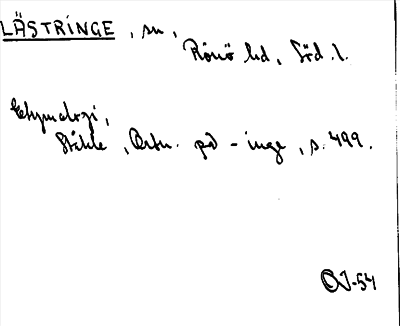 LÄSTRINGE, sn,
Rönö hd, Söd. l.
Etymologi,
Ståhle, Ortn. på -inge, s. 499.
OJ-54